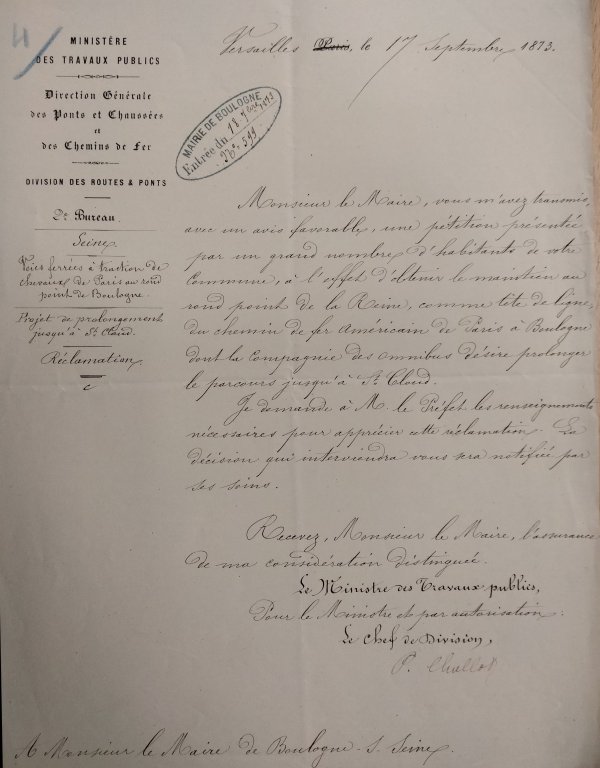 4
MINISTÈRE
DES TRAVAUX PUBLICS
Direction Générale
des Ponts et Chaussées
et
des Chemins de Fer
DIVISION DES ROUTES & PONTS
2e Bureau.
Seine
Voies ferrées à traction de
chevaux de Paris au rond
point de Boulogne.
Projet de prolongement
jusqu'à St. Cloud.
Réclamation
Versailles Paris, le 17 Septembre 1873.
MAIRIE DE BOULOGNE
Entrée du 18 7bre 1873
No. 599
Monsieur le Maire, vous m'avez transmis,
avec un avis favorable, une pétition présentée
par un grand nombre d'habitants de votre
Commune, à l'effet d'obtenir le maintien au
rond point de la Reine, comme tête de ligne,
du chemin de fer Américain de Paris à Boulogne
dont la Compagnie des omnibus désire prolonger
le parcours jusqu'à St. Cloud.
Je demande à M. le Préfet les renseignements
nécessaires pour apprécier cette réclamation. La
décision qui interviendra vous sera notifiée par
ses soins.
Recevez, Monsieur le Maire, l'assurance
de ma considération distinguée.
Le Ministre des Travaux publics,
Pour le Ministre et par autorisation.
Le Chef de Division,
A Monsieur le Maire de Boulogne. S. Seine.